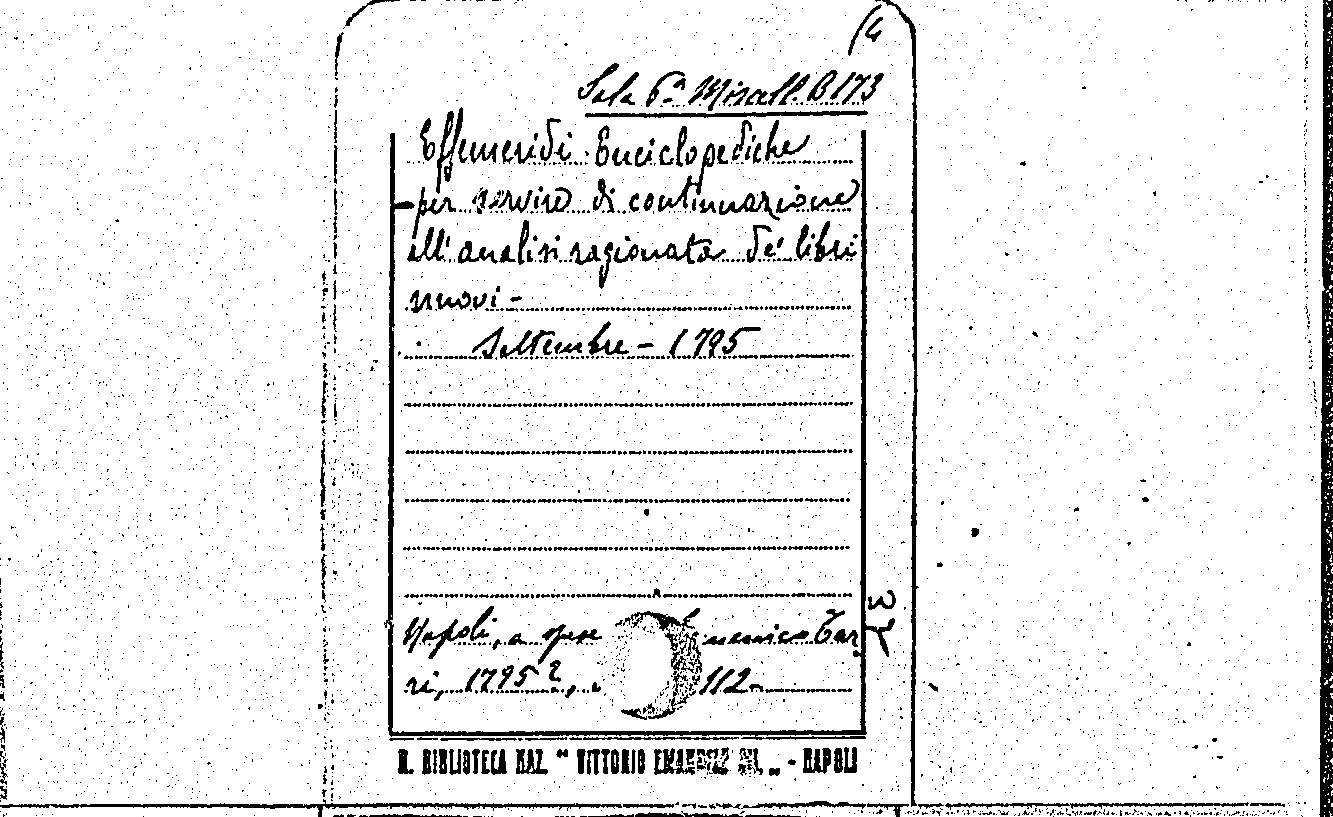 (4
Sala 6ª Miscell. B 173
Effemeridi Enciclopediche
per servire di continuazione
all'analisi ragionata de' libri
nuovi -
Settembre - 1795
Napoli, a spese Domenico Ter
ri, 1795 ?, 112 -
R. BIBLIOTECA NAZ. " VITTORIO EMANUELE III. „ - NAPOLI